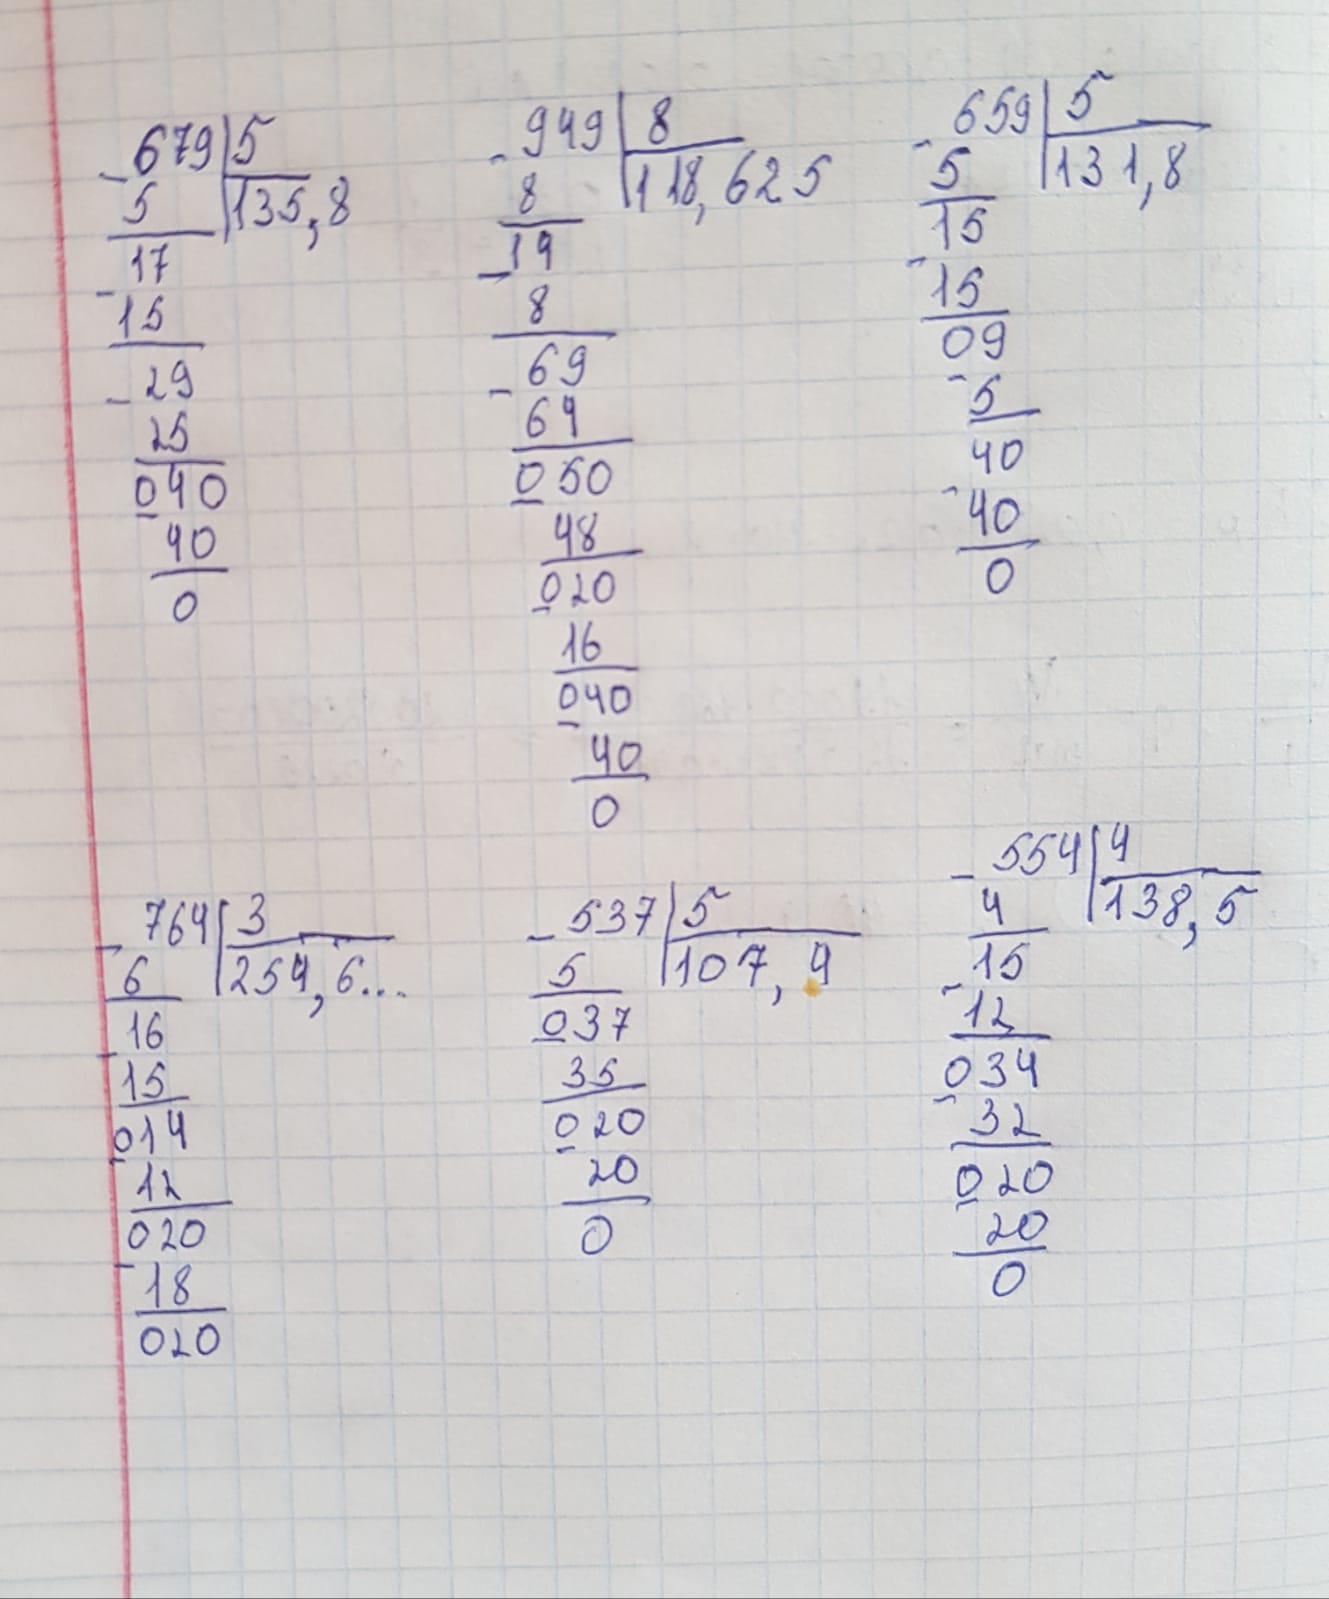 679 5
5 135,8
17
15
29
25
040
40
0
949 8
8 118,625
14
8
69
64
050
48
020
16
040
40
0
659 5
5 131,8
15
15
09
5
40
40
0
764 3
6 254,6...
16
15
014
12
020
18
020
537 5
5 107,4
037
35
020
20
0
554 4
4 138,5
15
12
034
32
020
20
0